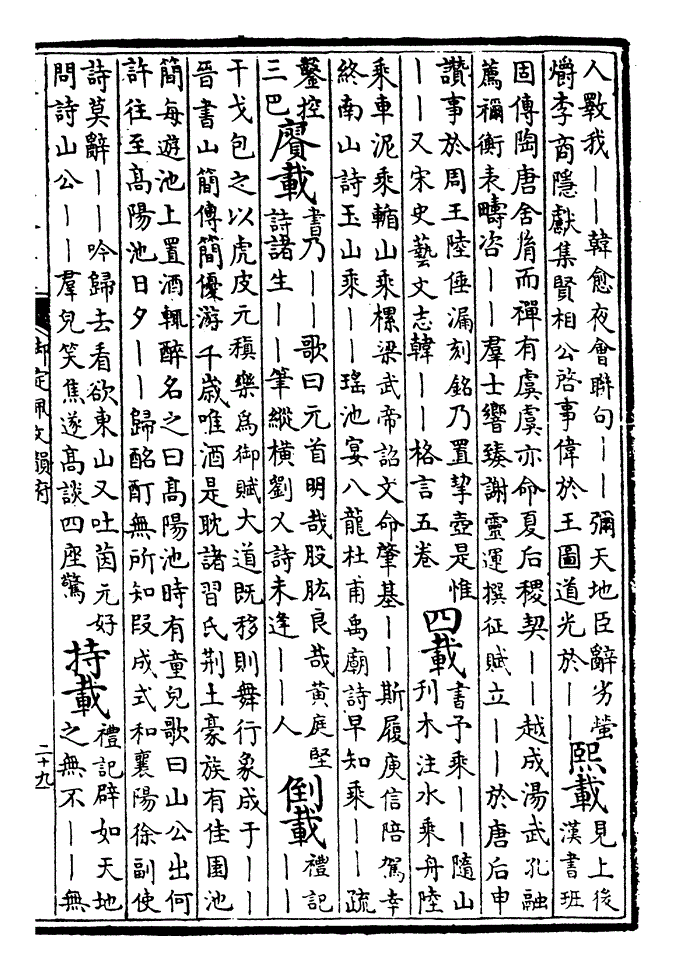 人斁我——韓愈夜會聯句——彌天地臣辭劣螢
爝李商隱獻集賢相公啓事偉於王圖道光於——
熙載
見上後
漢書班
固傳陶唐舍胤而禪有虞虞亦命夏后稷契——越成湯武孔融
薦禰衡表疇咨——羣士響臻謝靈運撰征賦立——於唐后申
讚事於周王陸倕漏刻銘乃置挈壺是惟
——又宋史藝文志韓——格言五卷
四載
書予乘——隨山
刋木注水乘舟陸
乘車泥乘輴山乘樏梁武帝詔文命肇基——斯履庾信陪駕幸
終南山詩玉山乘——瑤池宴八龍杜甫禹廟詩早知乘——疏
鑿控
三巴
賡載
書乃——歌曰元首明哉股肱良哉黄庭堅
詩諸生——筆縱横劉乂詩未逢——人
倒載
禮記
——
干戈包之以虎皮元稹樂為御賦大道既移則舞行象成于——
晉書山簡傳簡優游千歲唯酒是耽諸習氏荆土豪族有佳園池
簡每遊池上置酒輒醉名之曰髙陽池時有童兒歌曰山公出何
許往至髙陽池日夕——歸酩酊無所知段成式和襄陽徐副使
詩莫辭——吟歸去看欲東山又吐茵元好
問詩山公——羣兒笑焦遂髙談四座驚
持載
禮記辟如天地
之無不——無
御定佩文韻府
二十九